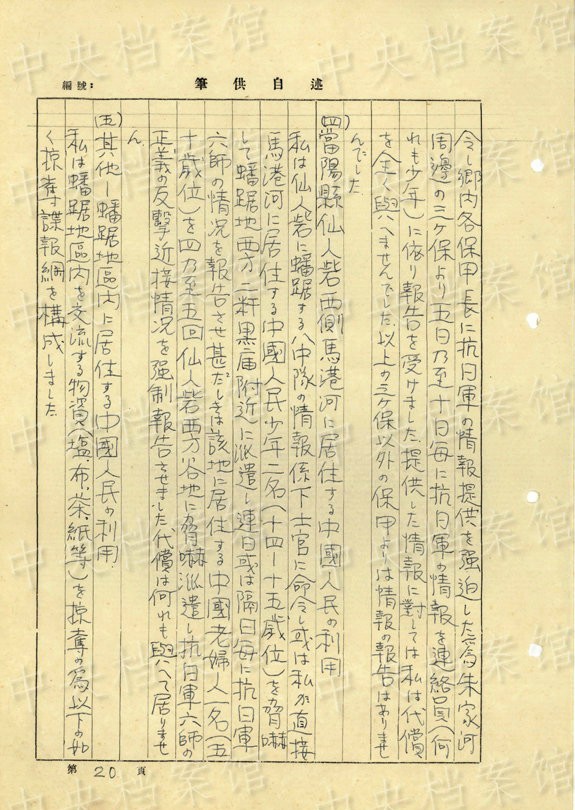 中央档案馆
編號：
筆供自述
令し郷内各保甲長に抗日軍の情報提供を強迫した為朱家河
周邊の三ケ保より五日乃至十日毎に抗日軍の情報を連絡員（何
れも少年）に依り報告を受けました提供した情報に對しては私は代償
を全く與へませんでした以上の三ケ保以外の保甲よりは情報の報告はありませ
んでした
(四)當陽縣仙人砦西側馬港河に居住する中國人民の利用
私は仙人砦に蟠踞する八中隊の情報係下士官に命令し或は私が直接
馬港河に居住する中國人民少年二名（十四－十五歳位）を脅嚇
して蟠踞地西方二粁黒庙附近に派遣し連日或は隔日毎に抗日軍
六師の情況を報告させ甚だしきは該地に居住する中國老婦人一名（五
十歳位）を四乃至五回仙人砦西方谷地に脅嚇派遣し抗日軍六師の
正義の反撃近接情況を强制報告させました代償は何れも與へて居りませ
ん
(五)其他－蟠踞地區内に居住する中國人民の利用
私は蟠踞地區内を交流する物資（塩、布、茶、紙等）を掠奪の為以下の如
く掠奪諜報網を構成しました
第 20 頁